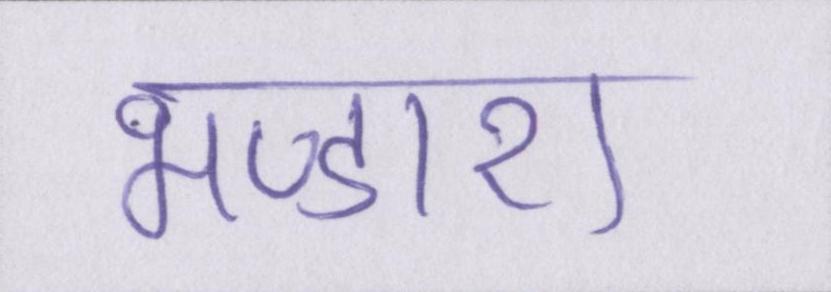 भण्डारा